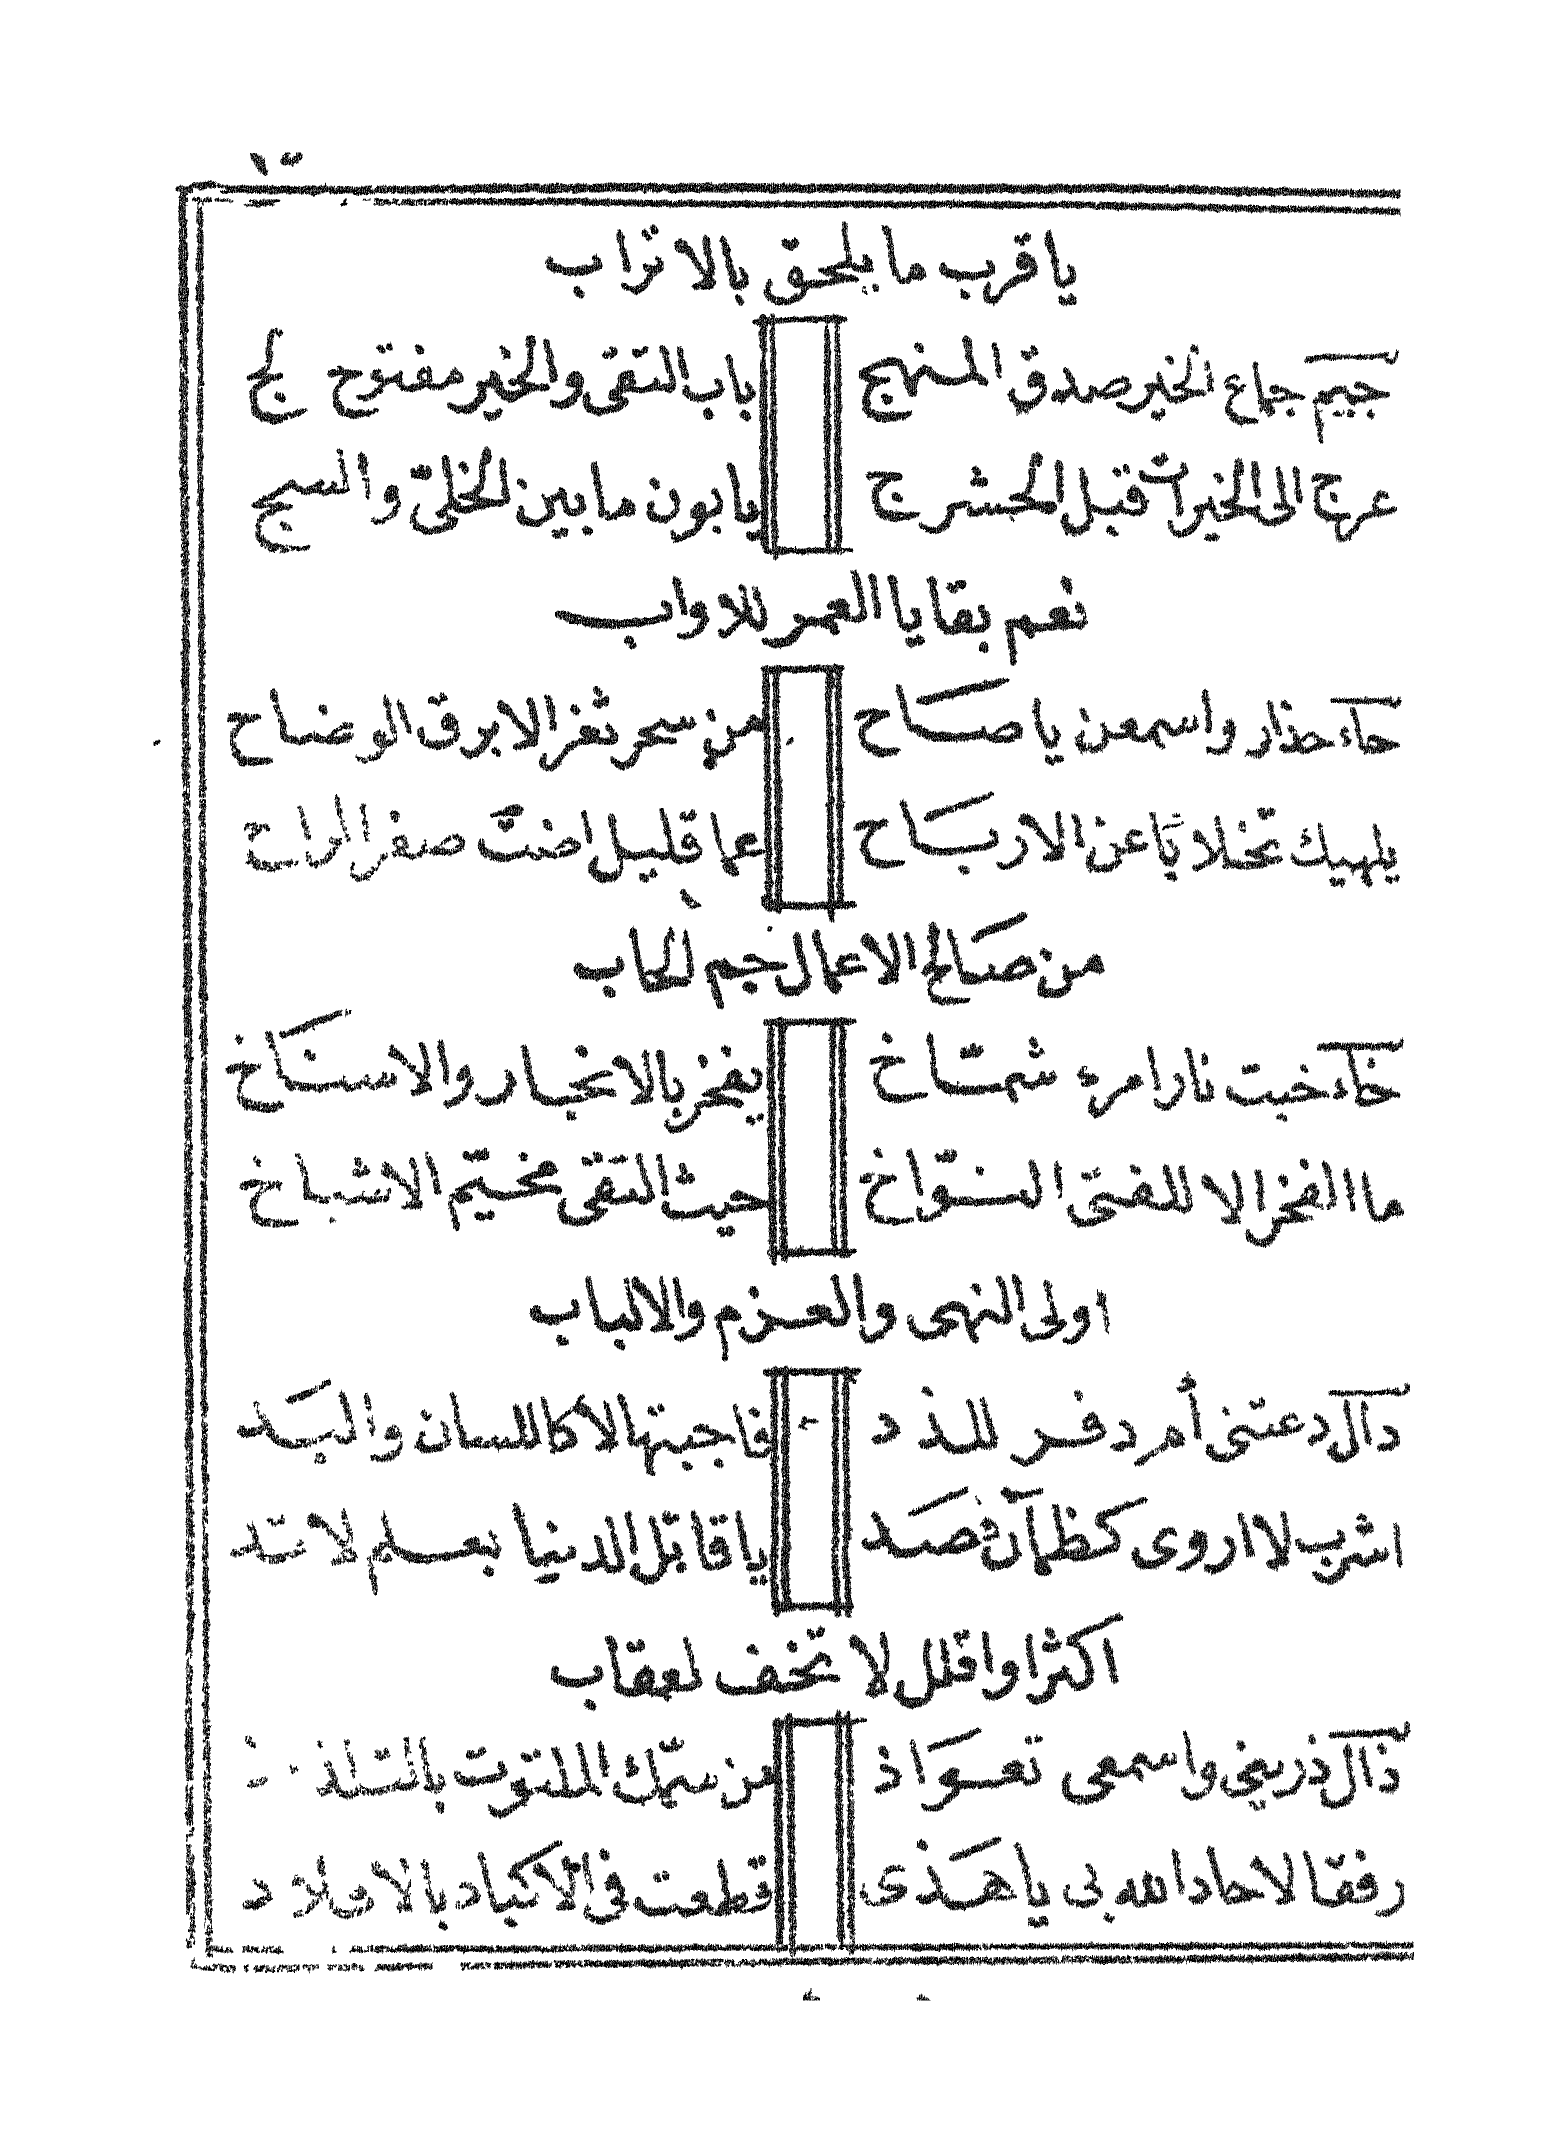 يا قرب ما يلحق بالاتراب
جيم جماع الخير صدق المنهج باب التقى والخير مفتوح لج
عرج الى الخيرات قبل الحشرج يا بون ما بين الخليّ والسبج
نعم بقايا العمر للاواب
حاء حذار واسمعن يا صاح من سحر ثغر الابرق الوضاح
يلهيك تخلاثا عن الارباح عما قليل اضت صفر الراح
من صالح الاعمال جم الحاب
خاء خبت نار امرء شمّاخ يفخر بالانجار والاسناخ
ما الفخر الا للفتى النوّاخ حيث التقى مختّم الاشباخ
اولى النهى والعزم والالباب
دال دعتنى أم دفر للذد فاجبتها لا كاللسان واليد
اشرب لا اروى كظمآن فصد يا قاتل الدنيا بعلم لا تد
اكثر او اقلل لا تخف لعقاب
ذال ذرينى واسمعى تعواذ من سمّك الملتوت بالتلذ
رفقا لا حاد الله بى يا هذى قطعت فى الاكباد بالاولاد